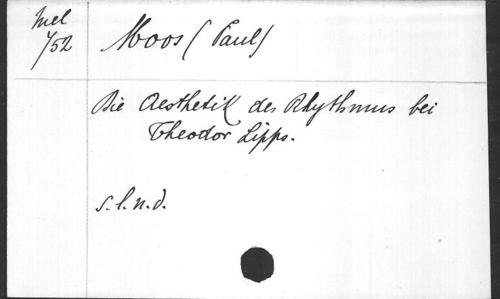 Mel
1/52
Moos (Paul)
Die Aesthetik des Rhythmus bei
Theodor Lipps.
s.l.n.d.